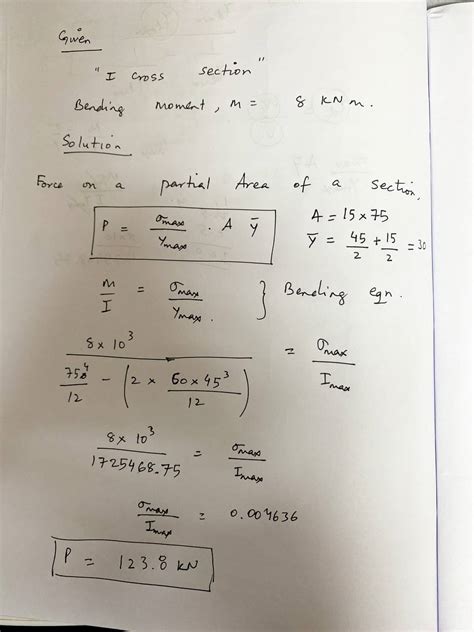 Given
"I cross section"
Bending moment, M = 8 KN m.
Solution
Force on a partial Area of a section,
P = σmax / Ymax · A ȳ
A = 15 × 75
ȳ = 45/2 + 15/2 = 30
M / I = σmax / Ymax. } Bending eqn.
8 × 10³ / (75⁴/12 - (2 × 60×45³/12)) = σmax / Imax
8 × 10³ / 1725468.75 = σmax / Imax
σmax / Imax = 0.004636
P = 123.8 KN